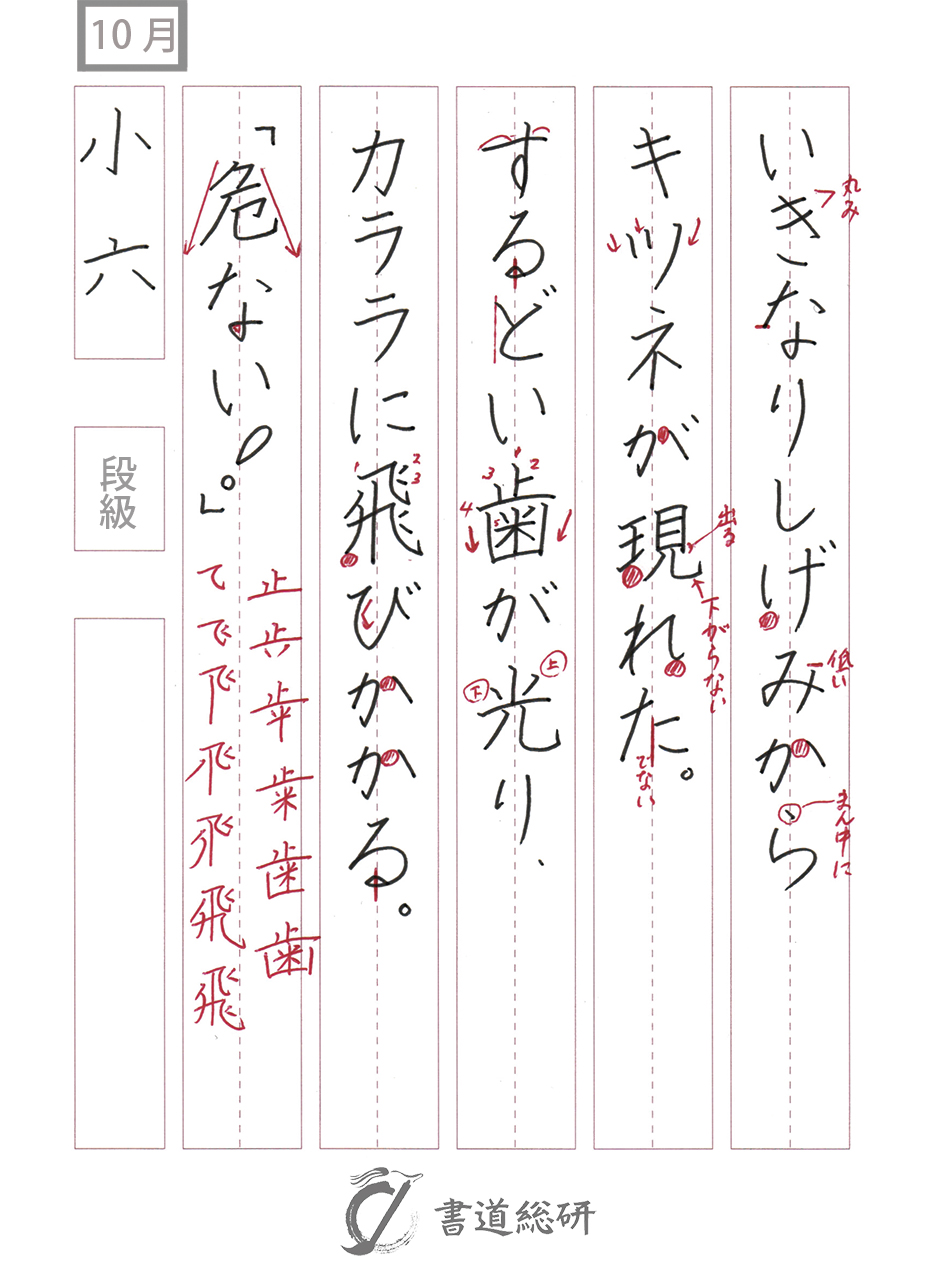 10月
いきなりしげみから
丸み
低い
まん中に
キツネが現れた。
出る
下がらない
でない
するどい歯が光り、
1
2
3
4
5
上
下
カララに飛びかかる。
1
2
3
「危ない!。」
止
歯
歯
飛
飛
小六
段級
書道総研